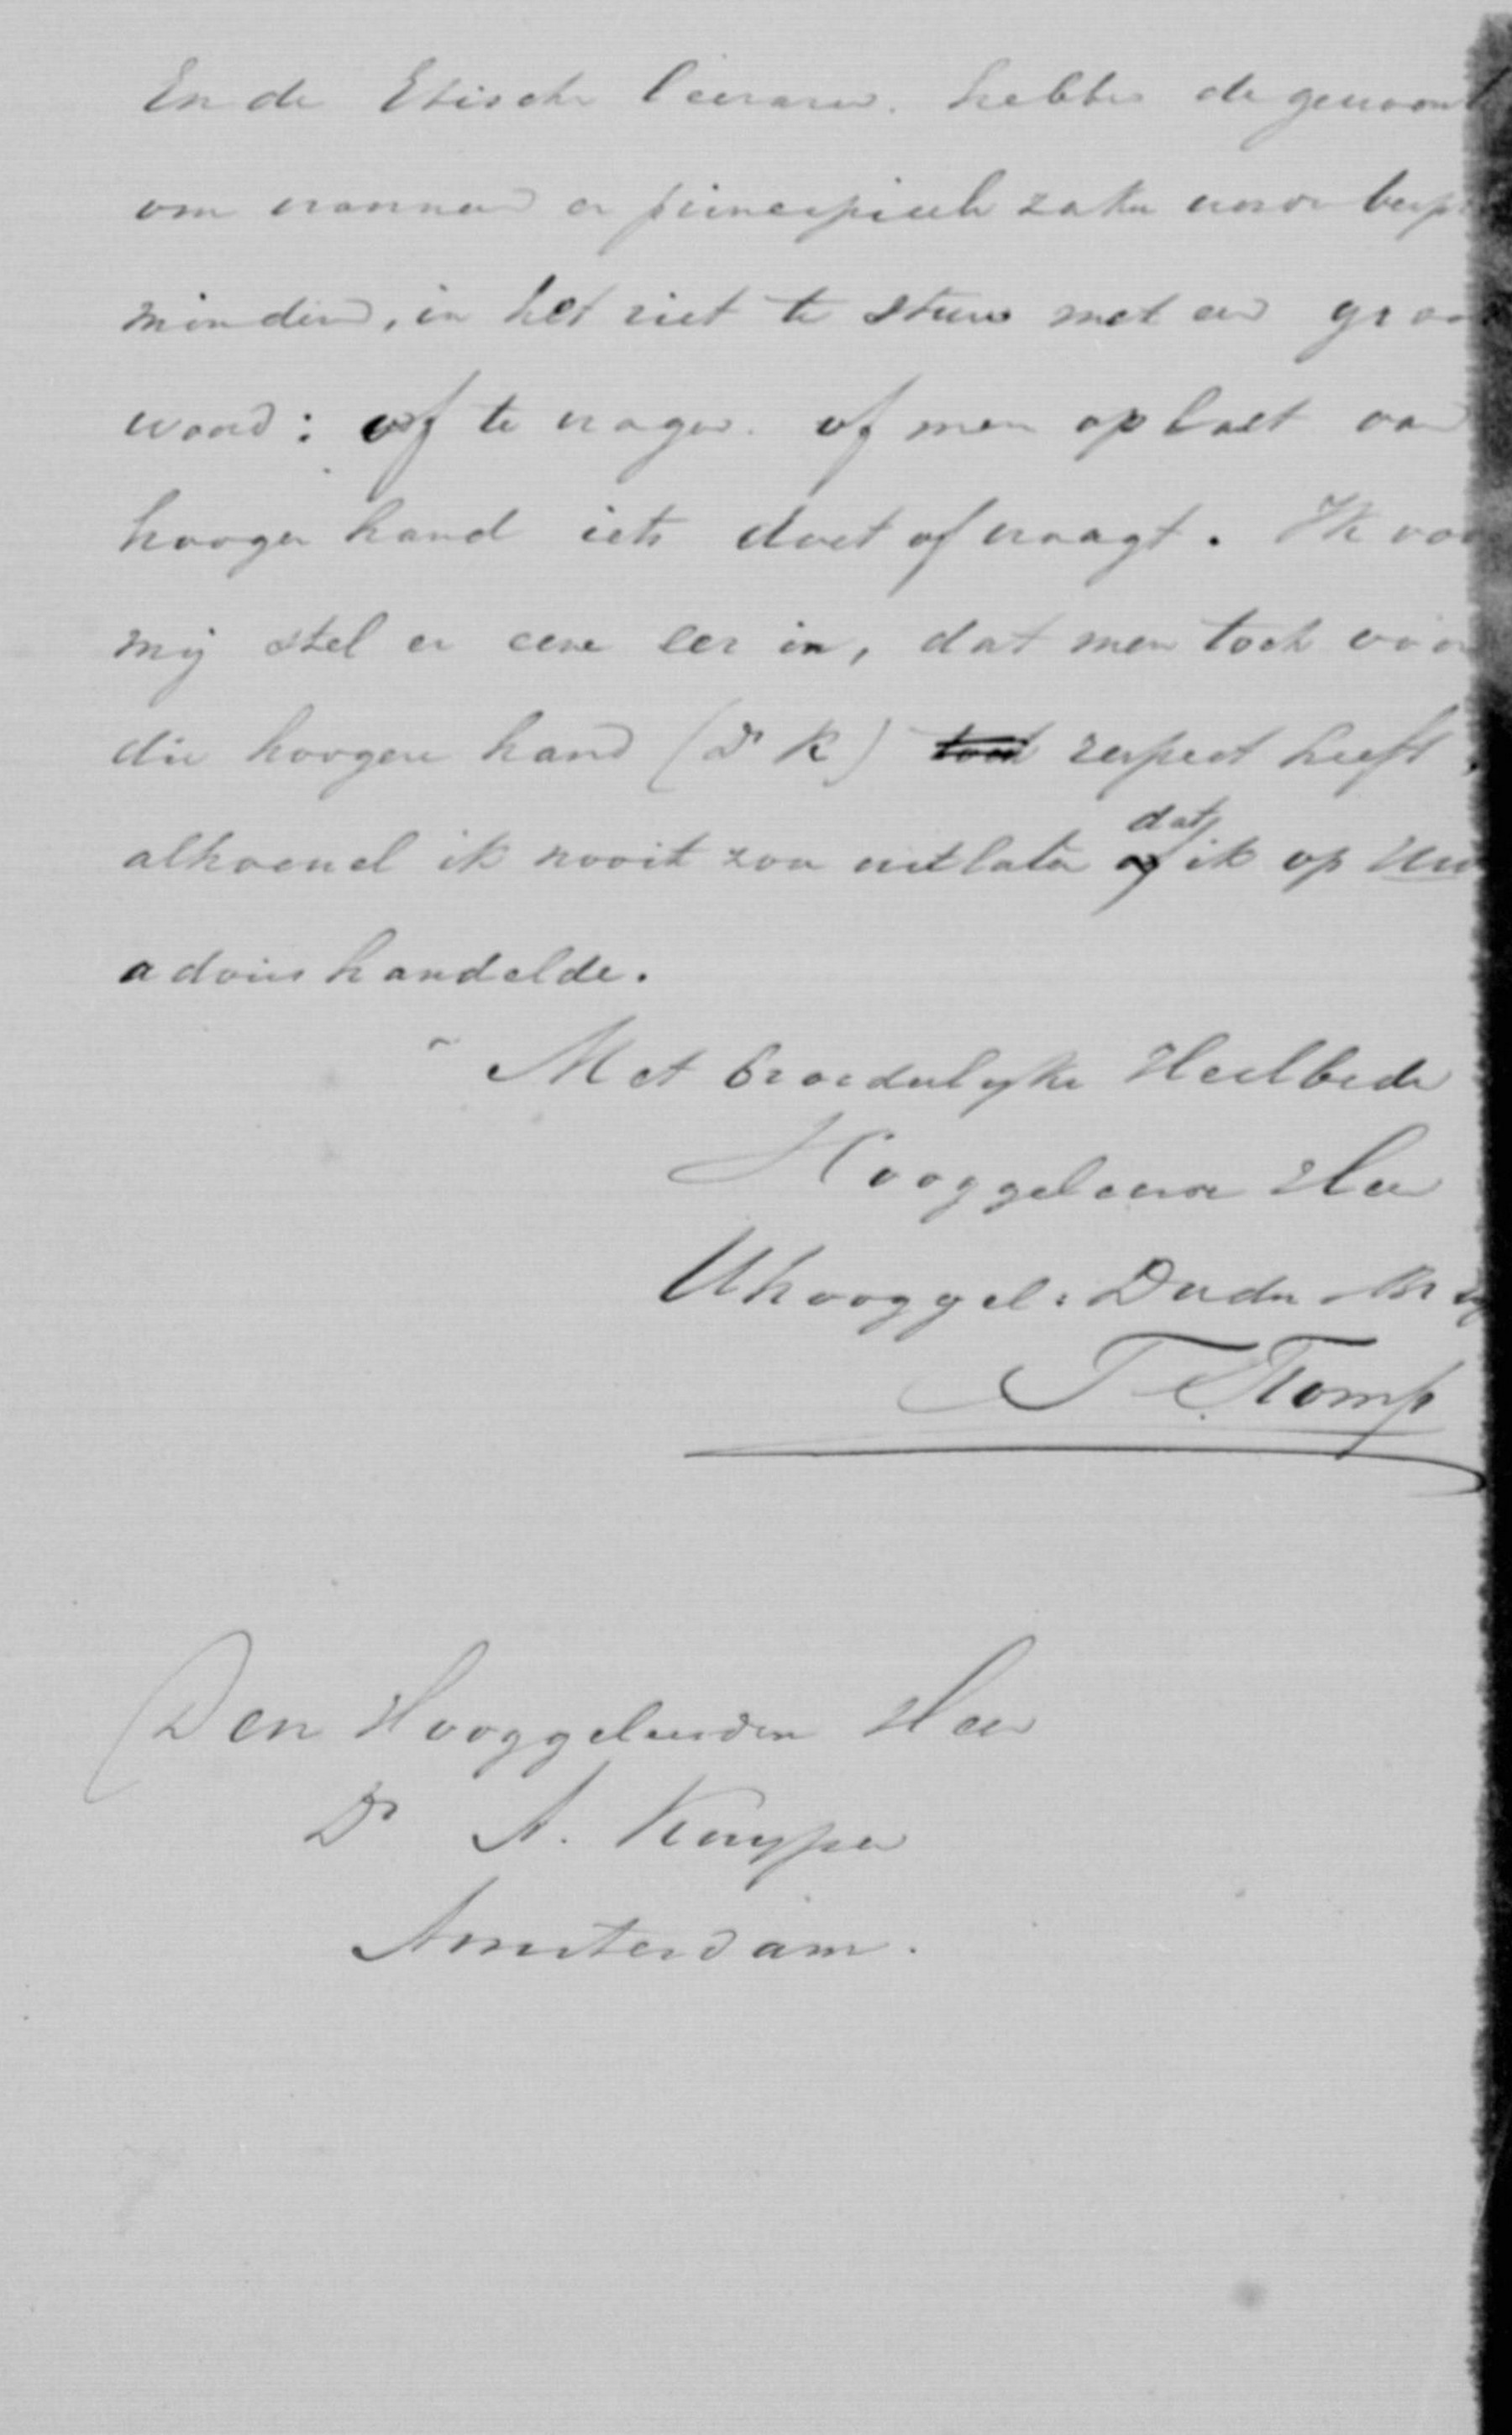 En de Etische leeraren hebben de gewoont
om wanneer er principieele zaken
minderen, in het riet te sturen met een groo
woord: of te vragen of men op last van
hooger hand iets doet of vraagt. Ik voo
mij stel er eene eer in, dat men toch voor
die hoogere hand (Dr K) respect heeft,
alhoewel ik nooit zou uitlaten dat ik op Uw
advies handelde.
Met broederlijke Heilbede
Hooggeleerde Heer
Uhooggel: Dwdn
T. Tromp
Den Hooggeleerden Heer
Dr A. Kuyper
Amsterdam.